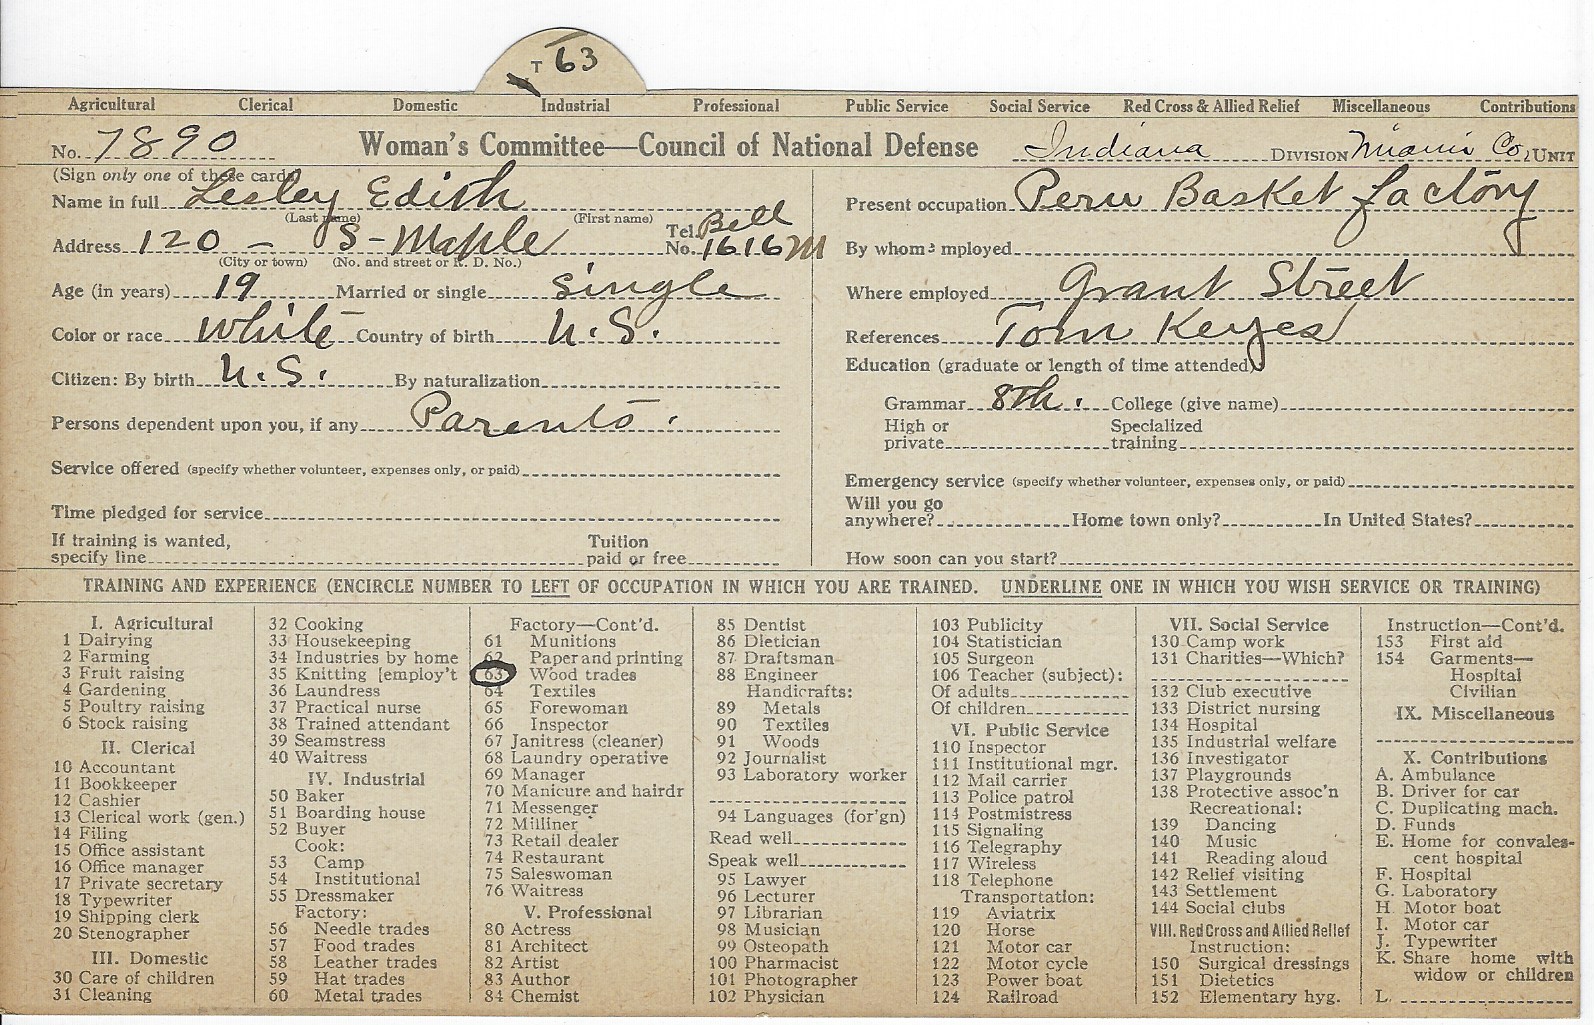 T 63
Agricultural Clerical Domestic Industrial Professional Public Service Social Service Red Cross & Allied Relief Miscellaneous Contributions
No. 7890 Woman's Committee—Council of National Defense Indiana DIVISION Miami Co, UNIT
(Sign only one of these cards)
Name in full Lesley Edith
(Last name) (First name)
Address 120 – S – Maple Tel. No. Bell 1616 M
(City or town) (No. and street or R. D. No.)
Age (in years) 19 Married or single single
Color or race White Country of birth U.S.
Citizen: By birth U.S. By naturalization
Persons dependent upon you, if any Parents.
Service offered (specify whether volunteer, expenses only, or paid)
Time pledged for service
If training is wanted,
specify line Tuition paid or free
Present occupation Peru Basket factory
By whom employed
Where employed Grant Street
References Tom Keyes
Education (graduate or length of time attended)
Grammar 8th. College (give name)
High or private Specialized training
Emergency service (specify whether volunteer, expenses only, or paid)
Will you go
anywhere? Home town only? In United States?
How soon can you start?
TRAINING AND EXPERIENCE (ENCIRCLE NUMBER TO LEFT OF OCCUPATION IN WHICH YOU ARE TRAINED. UNDERLINE ONE IN WHICH YOU WISH SERVICE OR TRAINING)
I. Agricultural
1 Dairying
2 Farming
3 Fruit raising
4 Gardening
5 Poultry raising
6 Stock raising
II. Clerical
10 Accountant
11 Bookkeeper
12 Cashier
13 Clerical work (gen.)
14 Filing
15 Office assistant
16 Office manager
17 Private secretary
18 Typewriter
19 Shipping clerk
20 Stenographer
III. Domestic
30 Care of children
31 Cleaning
32 Cooking
33 Housekeeping
34 Industries by home
35 Knitting [employ't
36 Laundress
37 Practical nurse
38 Trained attendant
39 Seamstress
40 Waitress
IV. Industrial
50 Baker
51 Boarding house
52 Buyer
Cook:
53 Camp
54 Institutional
55 Dressmaker
Factory:
56 Needle trades
57 Food trades
58 Leather trades
59 Hat trades
60 Metal trades
Factory—Cont'd.
61 Munitions
62 Paper and printing
63 Wood trades
64 Textiles
65 Forewoman
66 Inspector
67 Janitress (cleaner)
68 Laundry operative
69 Manager
70 Manicure and hairdr
71 Messenger
72 Milliner
73 Retail dealer
74 Restaurant
75 Saleswoman
76 Waitress
V. Professional
80 Actress
81 Architect
82 Artist
83 Author
84 Chemist
85 Dentist
86 Dietician
87 Draftsman
88 Engineer
Handicrafts:
89 Metals
90 Textiles
91 Woods
92 Journalist
93 Laboratory worker
94 Languages (for'gn)
Read well
Speak well
95 Lawyer
96 Lecturer
97 Librarian
98 Musician
99 Osteopath
100 Pharmacist
101 Photographer
102 Physician
103 Publicity
104 Statistician
105 Surgeon
106 Teacher (subject):
Of adults
Of children
VI. Public Service
110 Inspector
111 Institutional mgr.
112 Mail carrier
113 Police patrol
114 Postmistress
115 Signaling
116 Telegraphy
117 Wireless
118 Telephone
Transportation:
119 Aviatrix
120 Horse
121 Motor car
122 Motor cycle
123 Power boat
124 Railroad
VII. Social Service
130 Camp work
131 Charities—Which?
132 Club executive
133 District nursing
134 Hospital
135 Industrial welfare
136 Investigator
137 Playgrounds
138 Protective assoc'n
Recreational:
139 Dancing
140 Music
141 Reading aloud
142 Relief visiting
143 Settlement
144 Social clubs
VIII. Red Cross and Allied Relief
Instruction:
150 Surgical dressings
151 Dietetics
152 Elementary hyg.
Instruction—Cont'd.
153 First aid
154 Garments—
Hospital
Civilian
IX. Miscellaneous
X. Contributions
A. Ambulance
B. Driver for car
C. Duplicating mach.
D. Funds
E. Home for convales-
cent hospital
F. Hospital
G. Laboratory
H. Motor boat
I. Motor car
J. Typewriter
K. Share home with
widow or children
L.